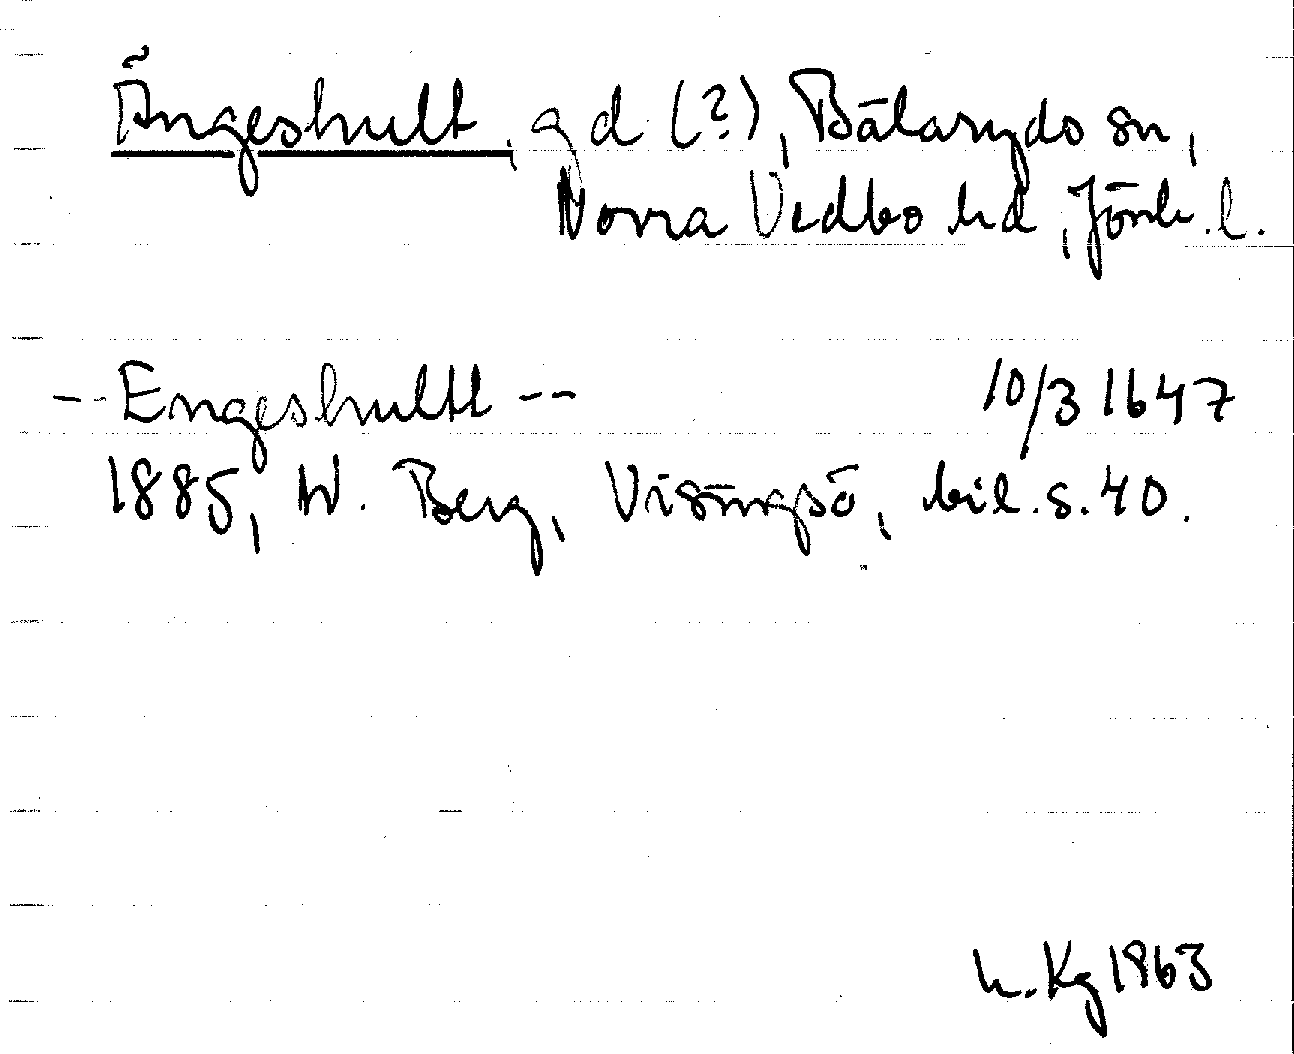 Ängeshult, gd (?), Bälaryds sn,
Norra Vedbo hd, Jönk. l.
-- Engeshultt -- 10/3 1647
1885, W. Berg, Visingsö, bil. s. 40.
h. Kg 1963